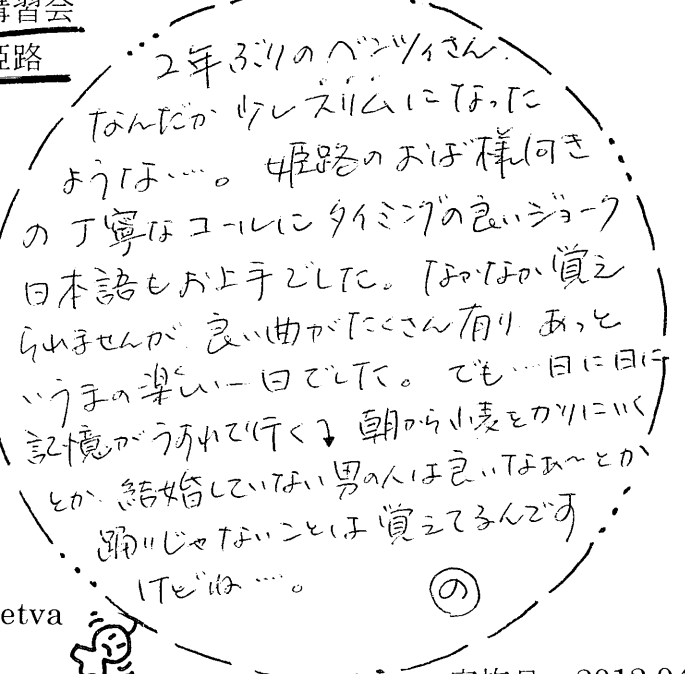 講習会
姫路
2年ぶりのベンツィさん.
なんだか少しスリムになった
ような…。姫路のおば様付き
の丁寧なコールにタイミングの良いジョーク
日本語もお上手でした。なかなか覚え
られませんが 良い曲がたくさん有り あっと
いうまの楽しい一日でした。でも…日に日に
記憶がうすれて行く↴ 朝から小麦をかりにいく
とか. 結婚していない男の人は良いなぁ〜とか
踊りじゃないことは覚えてるんです
けどね…。 の
etva